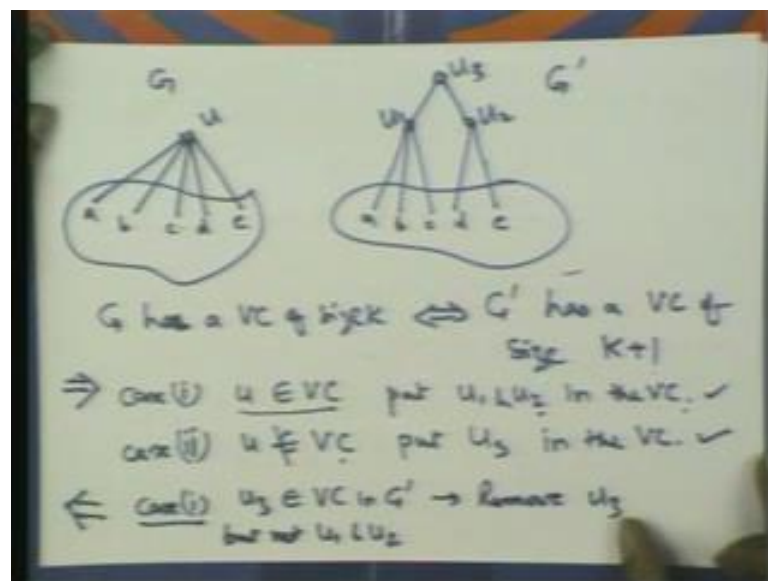 G G'
u u3
u1 u2
a b c d e a b c d e
G has a VC of size k ⇔ G' has a VC of
size K+1
⇒ case (i) u ∈ VC put u1 & u2 in the VC. ✓
case (ii) u ∉ VC put u3 in the VC. ✓
⇐ case (i) u3 ∈ VC in G' → Remove u3
but not u1 & u2